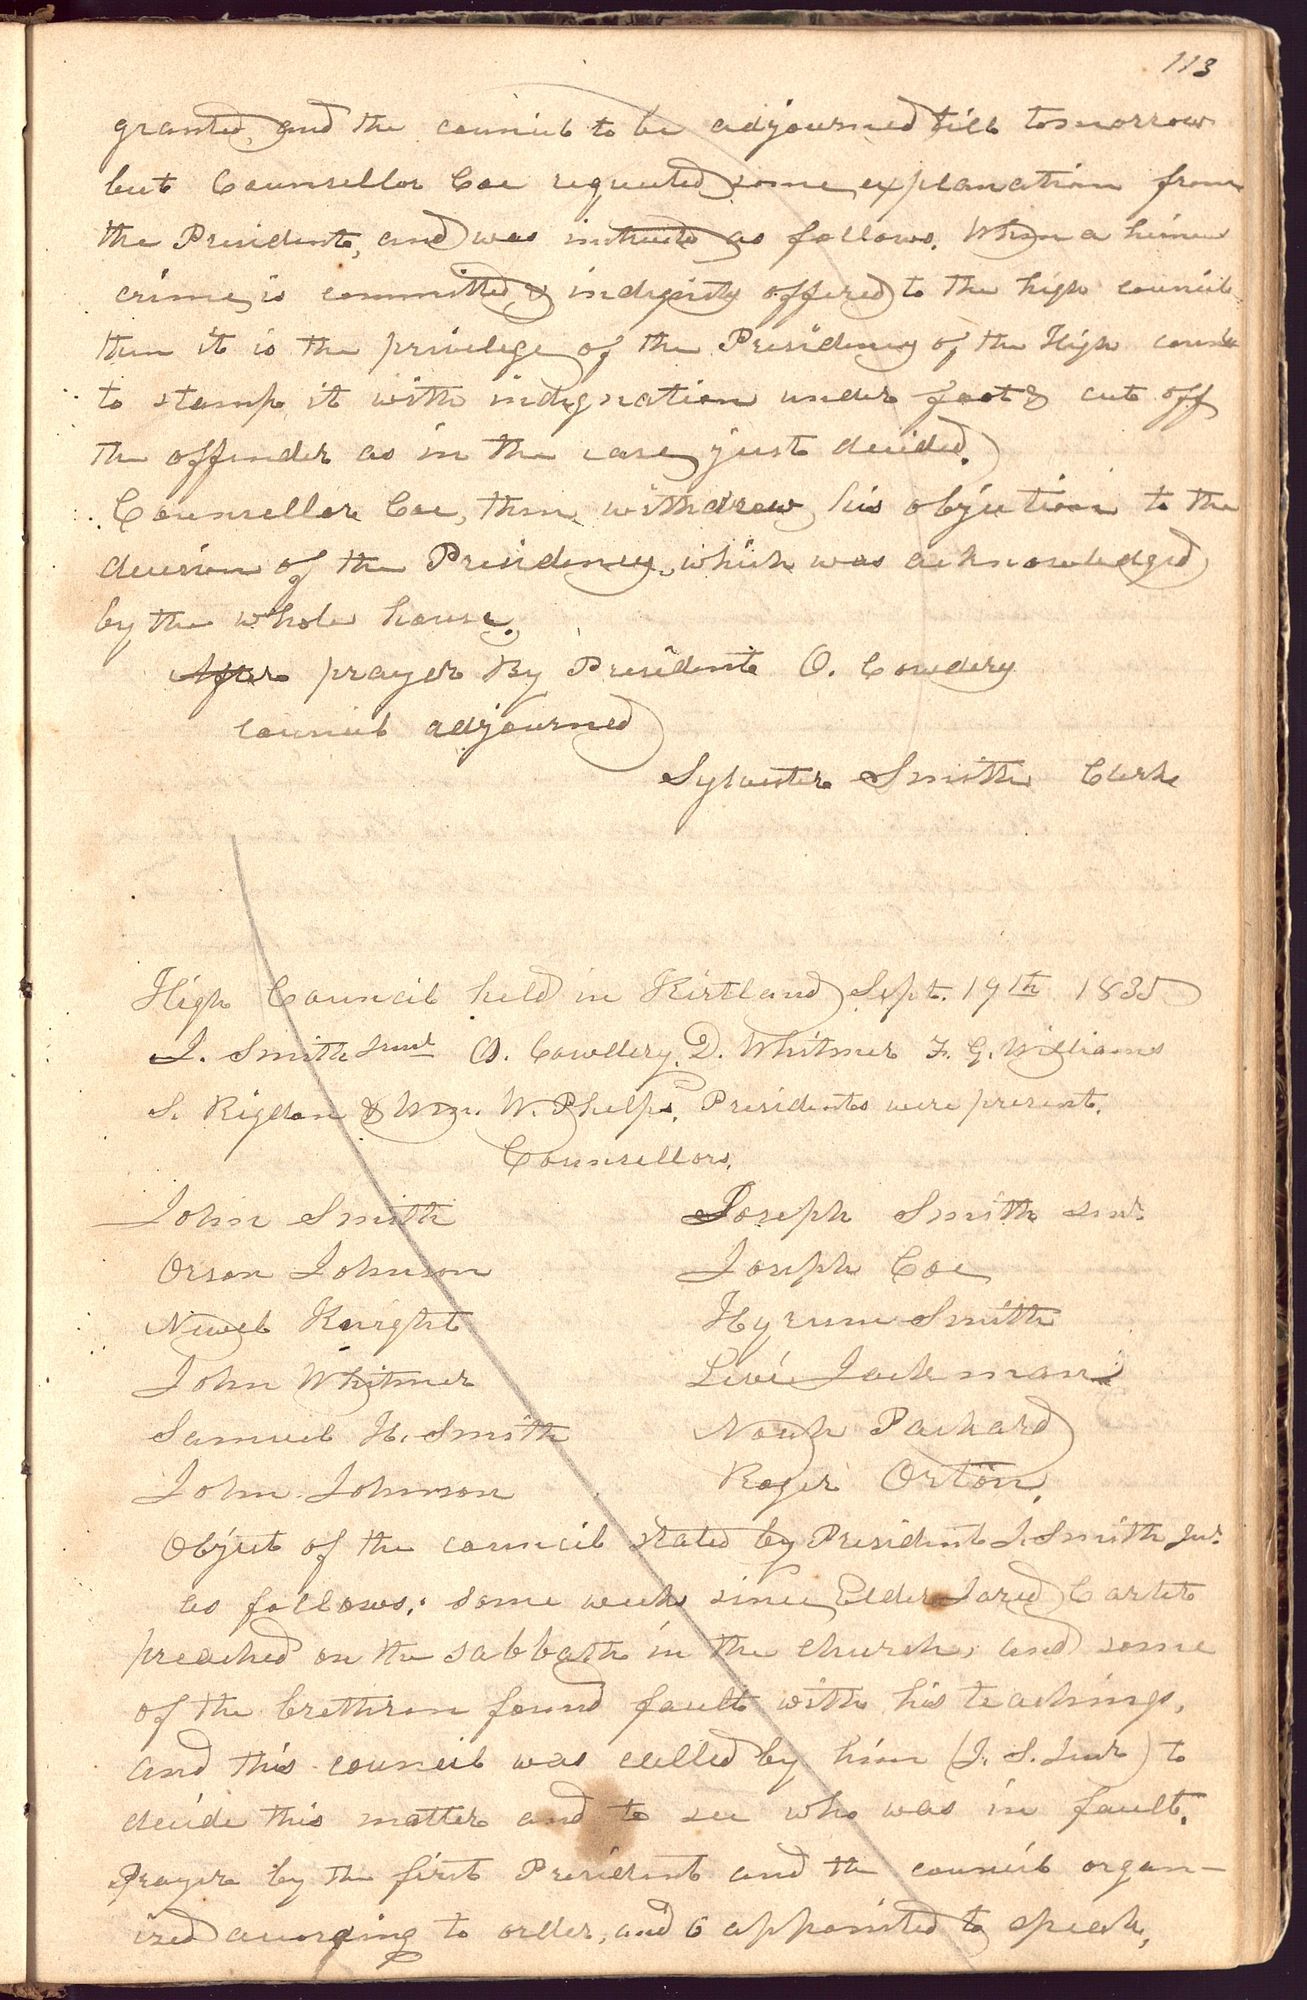 113
granted, and the council to be adjourned till tomorrow
but Counsellor Coe requested some explanation from
the President, and was instructed as follows. When a heinus
crime is committed & indignity offered to the high council
then it is the privelege of the Presidency of the High council
to stamp it with indignation under foot & cut off
the offender as in the case just decided.
Counsellor Coe, then withdrew his objection to the
decision of the Presidency, which was acknowledged
by the whole house.
After prayer By President O. Cowdery
council adjourned
Sylvester Smith Clerk
High Council held in Kirtland Sept. 19th 1835
J. Smith Junr O. Cowdery, D. Whitmer F. G. Williams
S. Rigdon & Wm. W. Phelps, Presidents were present.
Counsellors,
John Smith Joseph Smith snr
Orson Johnson Joseph Coe
Newel Knight Hyrum Smith
John Whitmer Levi Jackman
Samuel H. Smith Noah Packard
John Johnson Roger Orton,
Object of the council stated by President J. Smith Jur.
as follows: some weeks since Elder Jared Carter
preached on the sabbath in the church, and some
of the brethren found fault with his teachings,
and this council was called by him (J. S. Junr) to
decide this matter and to see who was in fault.
Prayer by the first President and the council organ-
ized according to order, and 6 appointed to speak,